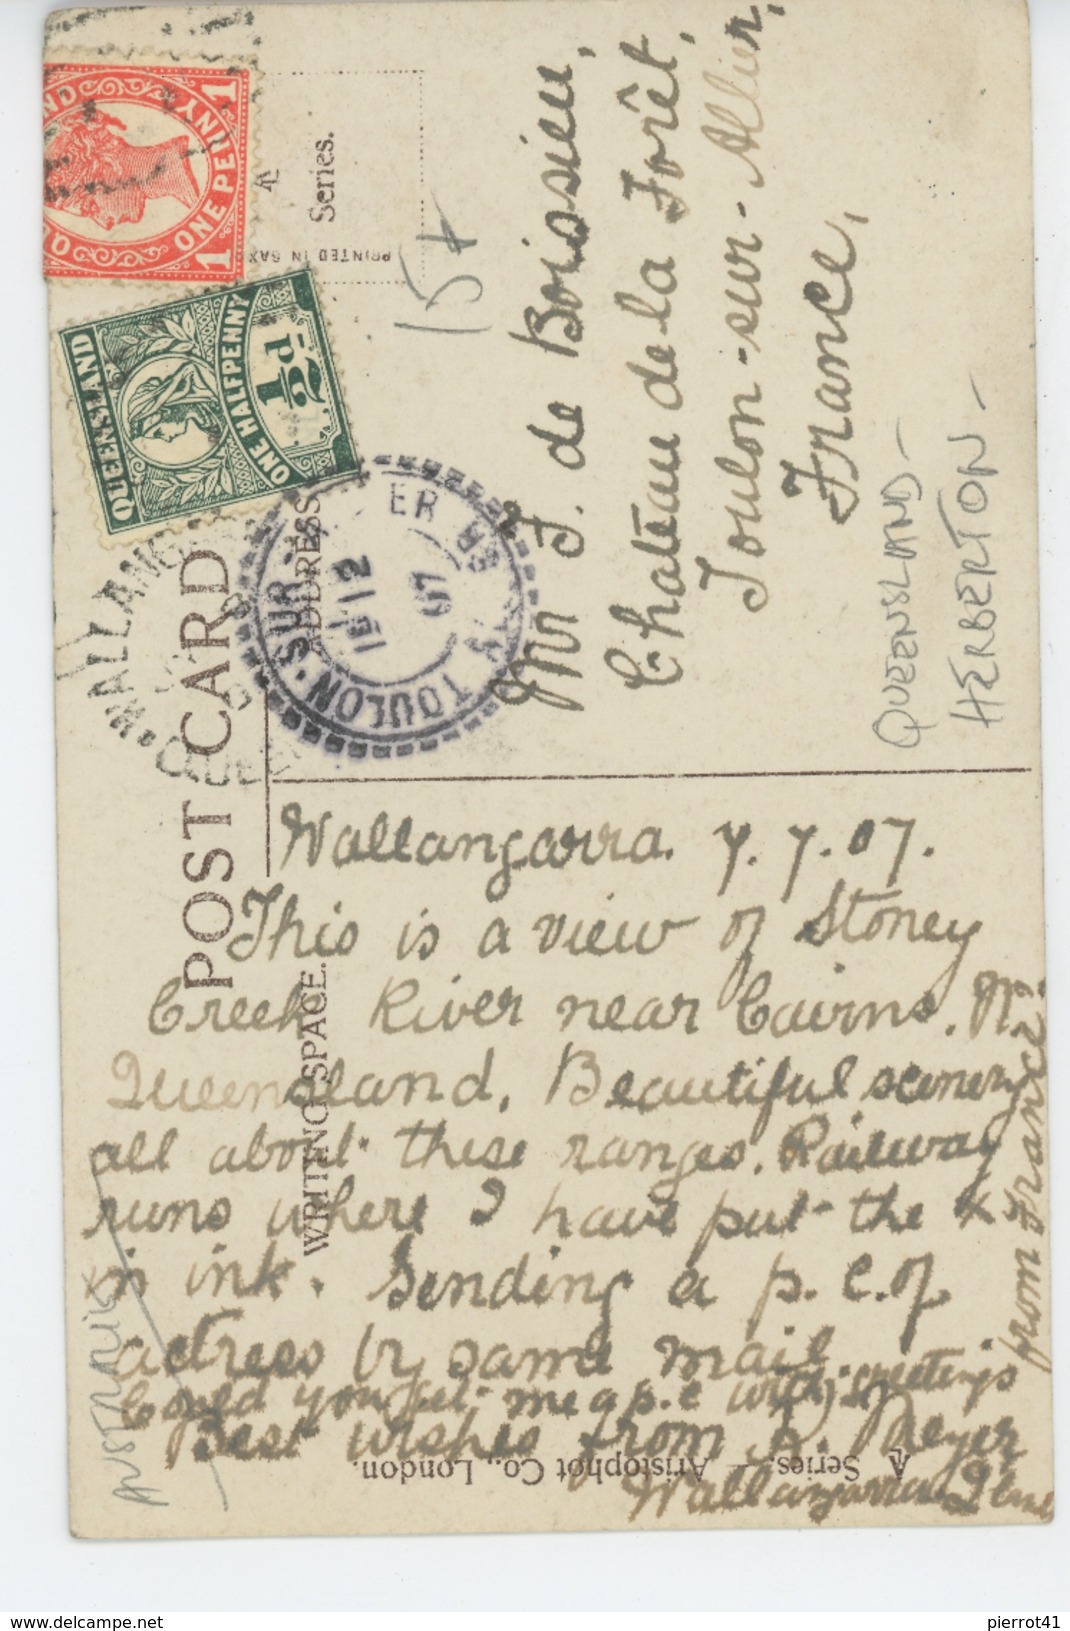 POST CARD
WRITING SPACE.
ADDRESS
Series.
PRINTED IN SAX
QUEENSLAND
ONE PENNY
1
1
QUEENSLAND
ONE HALFPENNY
½d
WALLANG
TOULON-SUR-
15 12
07
15+
Mr F. de Boissieu,
Chateau de la Forêt,
Toulon-sur-Allier,
France,
QUEENSLAND-
HERBERTON-
Wallangarra. 7. 7. 07.
This is a view of Stoney
Creek River near Cairns. N.
Queensland. Beautiful scenery
all about these ranges. Railway
runs where I have put the x
in ink. Sending a p.c. of
actress by same mail
Could you get me a p.c with greetings
from France.
Best wishes from A. Meyer
Wallangarra
AUSTRALIE
Series. — Aristophot Co., London.
delcampe.net
pierrot41